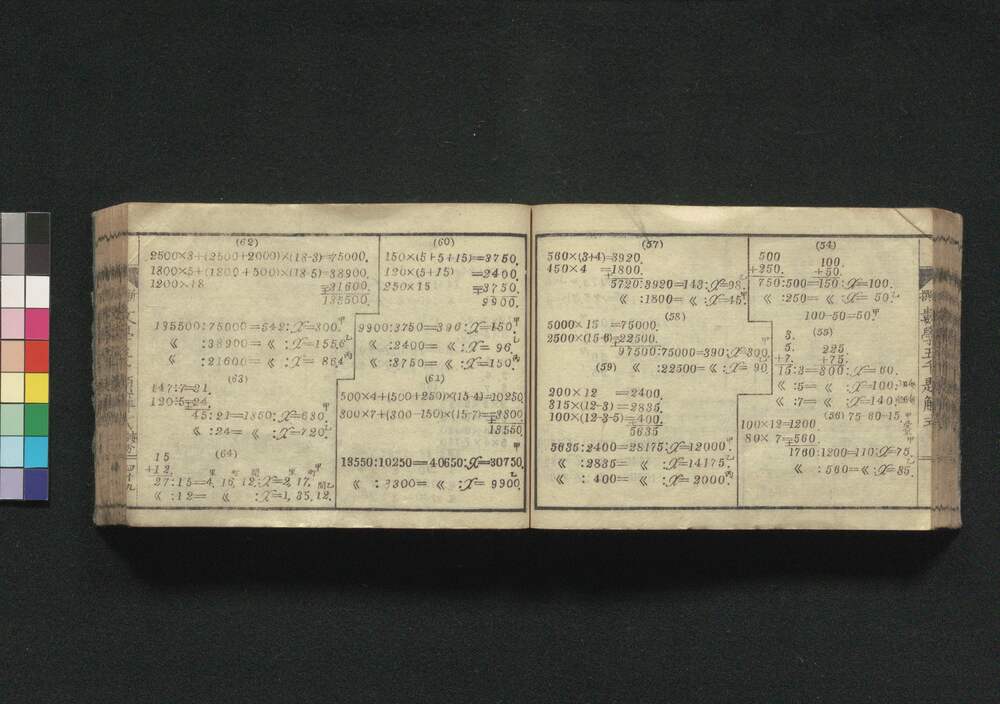 (54)
500
+250.
750:500=150:x=100.
100.
+50.
《 :250= 《 :x= 50.乙
100-50=50.甲
(55)
3.
5.
+7.
15:3=300:x=60.
225.
+75.
《 :5= 《 :x=100.
《 :7= 《 :x=140.
(56) 75-60=15.
100×12=1200.
80×7=560.
1760:1200=110:x=75.
《 :560= 《 :x=35.
(57)
560×(3+4)=3920.
450×4 =1800.
5720:3920=143:x=98.
《 :1800= 《 :x=45.
(58)
5000×15 =75000.
2500×(15-6)=22500.
97500:75000=390:x=300.
《 :22500= 《 :x= 90.
(59)
200×12 =2400.
315×(12-3)=2835.
100×(12-3-5)=400.
5635
5635:2400=28175:x=12000.甲
《 :2835= 《 :x=14175.乙
《 : 400= 《 :x= 2000.丙
(60)
150×(5+5+15)=3750.
120×(5+15) =2400.
250×15 =3750.
9900.
9900:3750=396:x=150.甲
《 :2400= 《 :x= 96.乙
《 :3750= 《 :x=150.丙
(61)
500×4+(500+250)×(15-4)=10250.
300×7+(300-150)×(15-7)=3300.
13550.
13550:10250=40650:x=30750.甲
《 :3300= 《 :x= 9900.乙
(62)
2500×3+(2500+2000)×(18-3)=75000.
1800×5+(1800+500)×(18-5)=38900.
1200×18 =21600.
135500.
135500:75000=542:x=300.甲
《 :38900= 《 :x=155.6乙
《 :21600= 《 :x=86.4丙
(63)
147:7=21.
120:5=24.
45:21=1350:x=630.甲
《 :24= 《 :x=720.乙
(64)
15
+12.
27:15=4, 15, 12:x=2, 17.
《 :12= 《 :x=1, 35, 12.